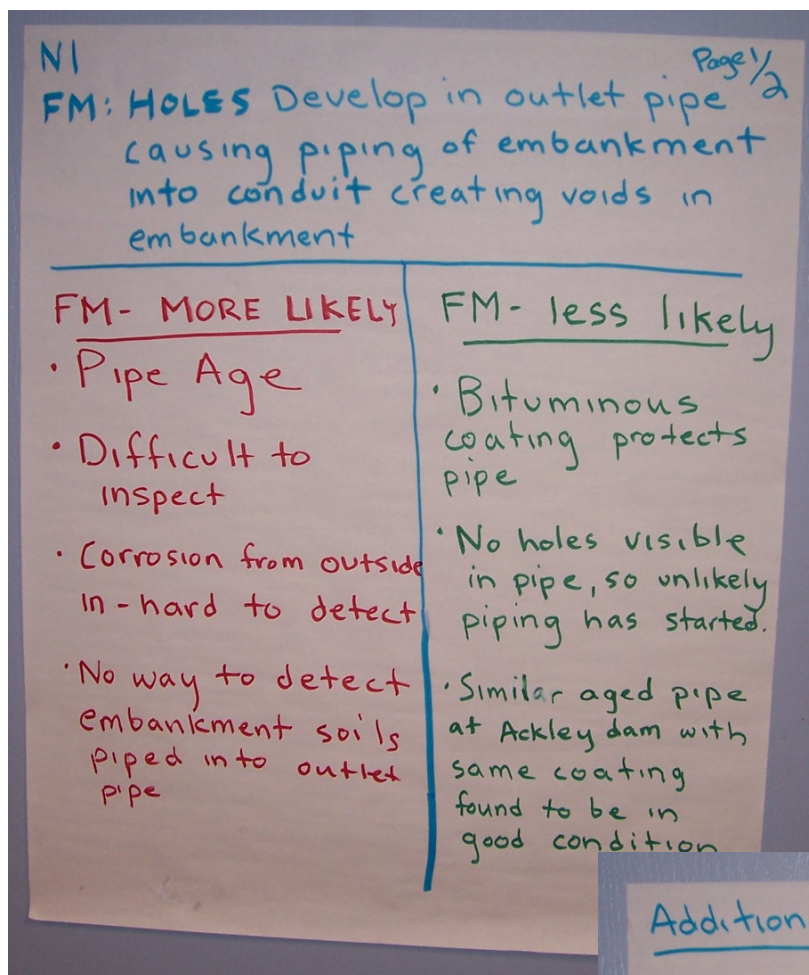 N1
Page 1/2
FM: HOLES Develop in outlet pipe
causing piping of embankment
into conduit creating voids in
embankment
FM- MORE LIKELY
• Pipe Age
• Difficult to
inspect
• Corrosion from outside
in-hard to detect
• No way to detect
embankment soils
piped into outlet
pipe
FM- less likely
• Bituminous
coating protects
pipe
• No holes visible
in pipe, so unlikely
piping has started.
• Similar aged pipe
at Ackley dam with
same coating
found to be in
good condition
Addition